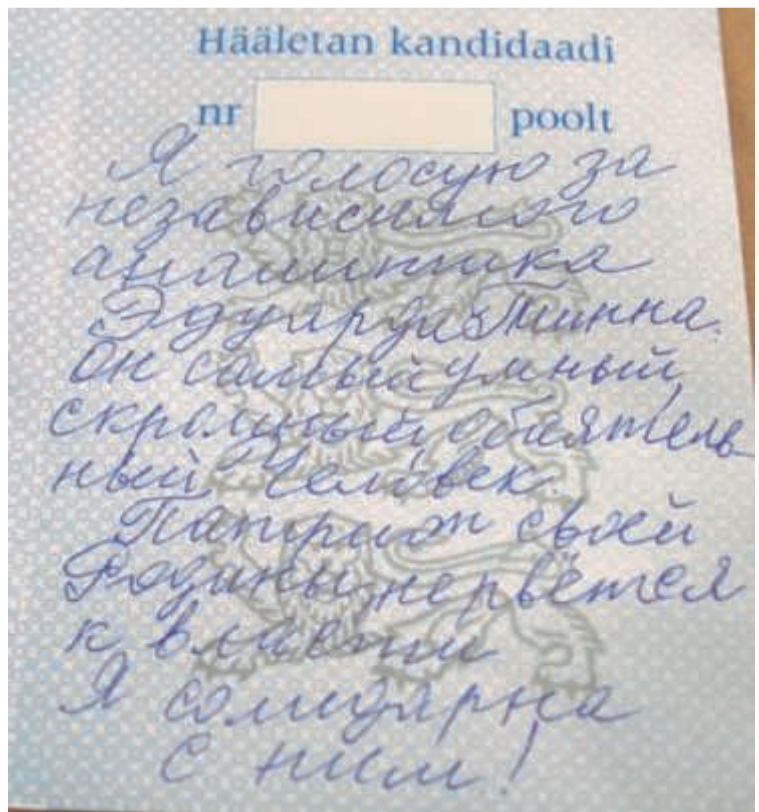 Hääletan kandidaadi
nr poolt
Я голосую за
независимого
аналитика
Эдуарда Тинна.
Он самый умный,
скромный, обаятель-
ный Человек.
Патриот своей
Родины, не рвётся
к власти
Я солидарна
с ним!